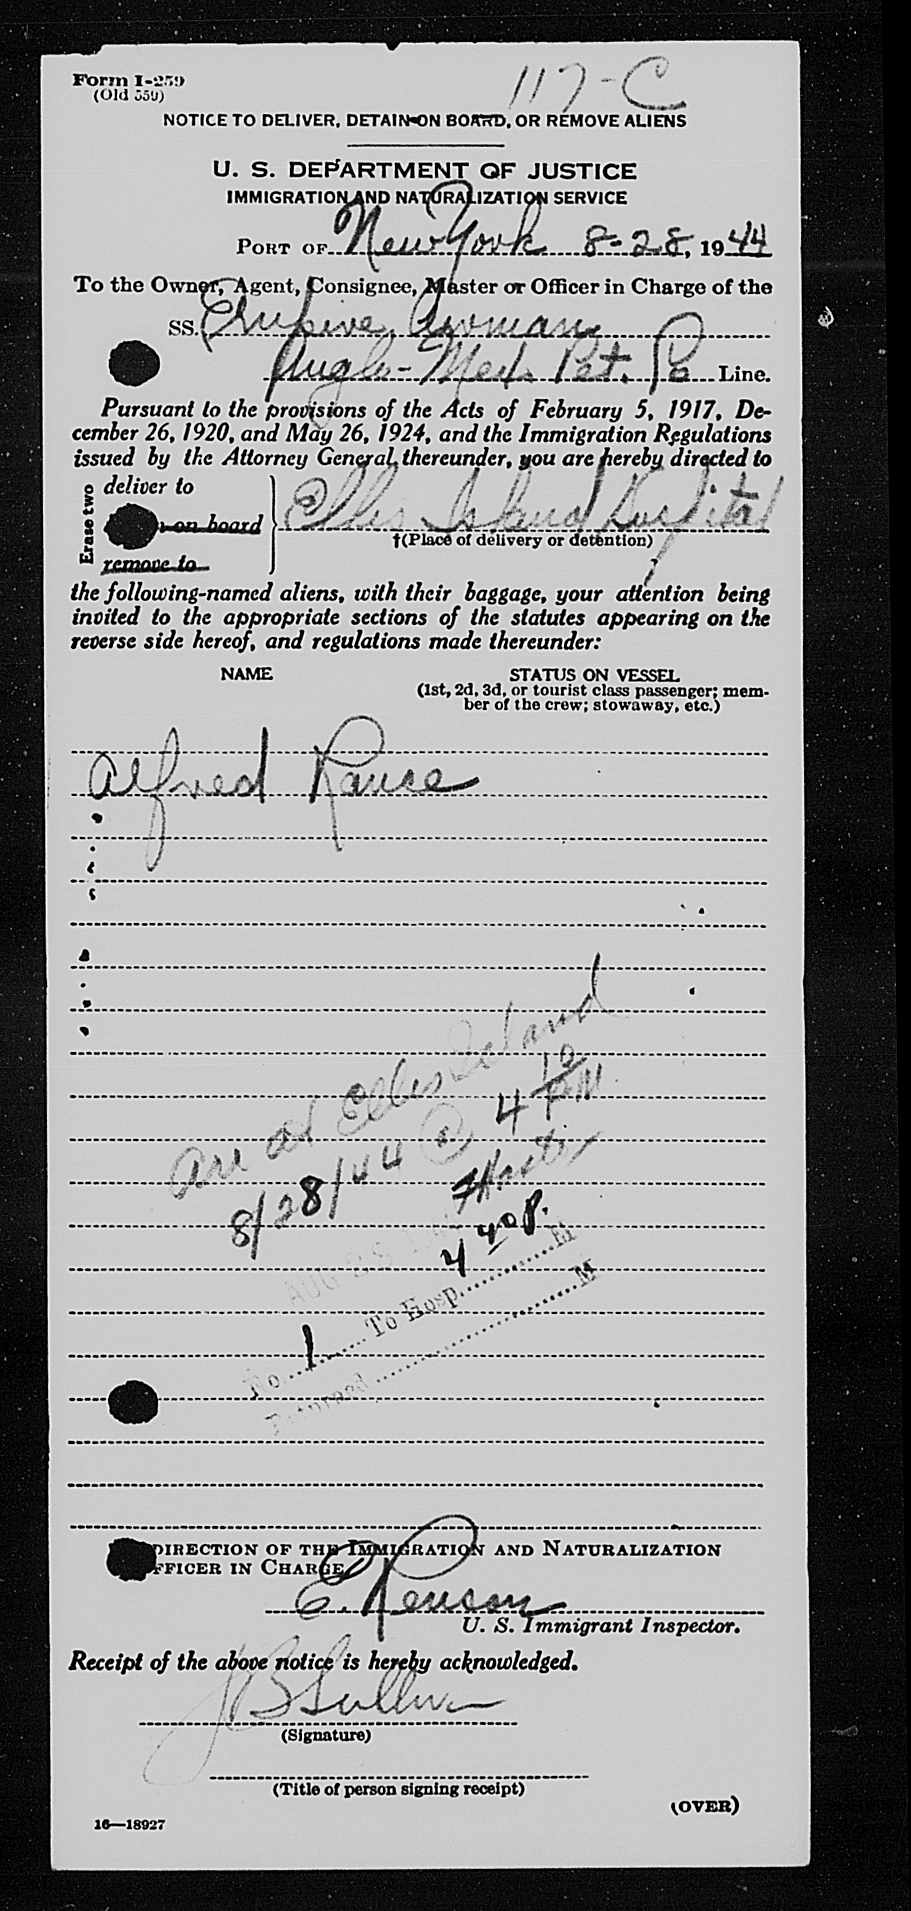 Form I-259
(Old 559)
117-C
NOTICE TO DELIVER, DETAIN ON BOARD, OR REMOVE ALIENS
U. S. DEPARTMENT OF JUSTICE
IMMIGRATION AND NATURALIZATION SERVICE
PORT OF New York 8-28, 1944
To the Owner, Agent, Consignee, Master or Officer in Charge of the
SS. Empire Norman
Anglo-Mex. Pet. Co Line.
Pursuant to the provisions of the Acts of February 5, 1917, De-
cember 26, 1920, and May 26, 1924, and the Immigration Regulations
issued by the Attorney General thereunder, you are hereby directed to
Erase two
deliver to
on board
remove to
Ellis Island Hospital
†(Place of delivery or detention)
the following-named aliens, with their baggage, your attention being
invited to the appropriate sections of the statutes appearing on the
reverse side hereof, and regulations made thereunder:
NAME STATUS ON VESSEL
(1st, 2d, 3d, or tourist class passenger; mem-
ber of the crew; stowaway, etc.)
Alfred Rance
Arr at Ellis Island
8/28/44 @ 4 10 PM
4 40 P.
AUG 28
No. 1 To Hosp. M
Returned M
DIRECTION OF THE IMMIGRATION AND NATURALIZATION
FFICER IN CHARGE
E. Renson
U. S. Immigrant Inspector.
Receipt of the above notice is hereby acknowledged.
JB Sullivan
(Signature)
(Title of person signing receipt)
(OVER)
16—18927